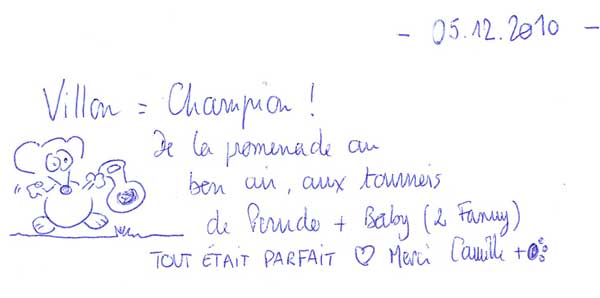 - 05.12.2010 -
Villon = Champion !
De la promenade au
bon air, aux tournois
de Perudo + Baby (2 Fanny)
TOUT ÉTAIT PARFAIT ♡ Merci Camille +